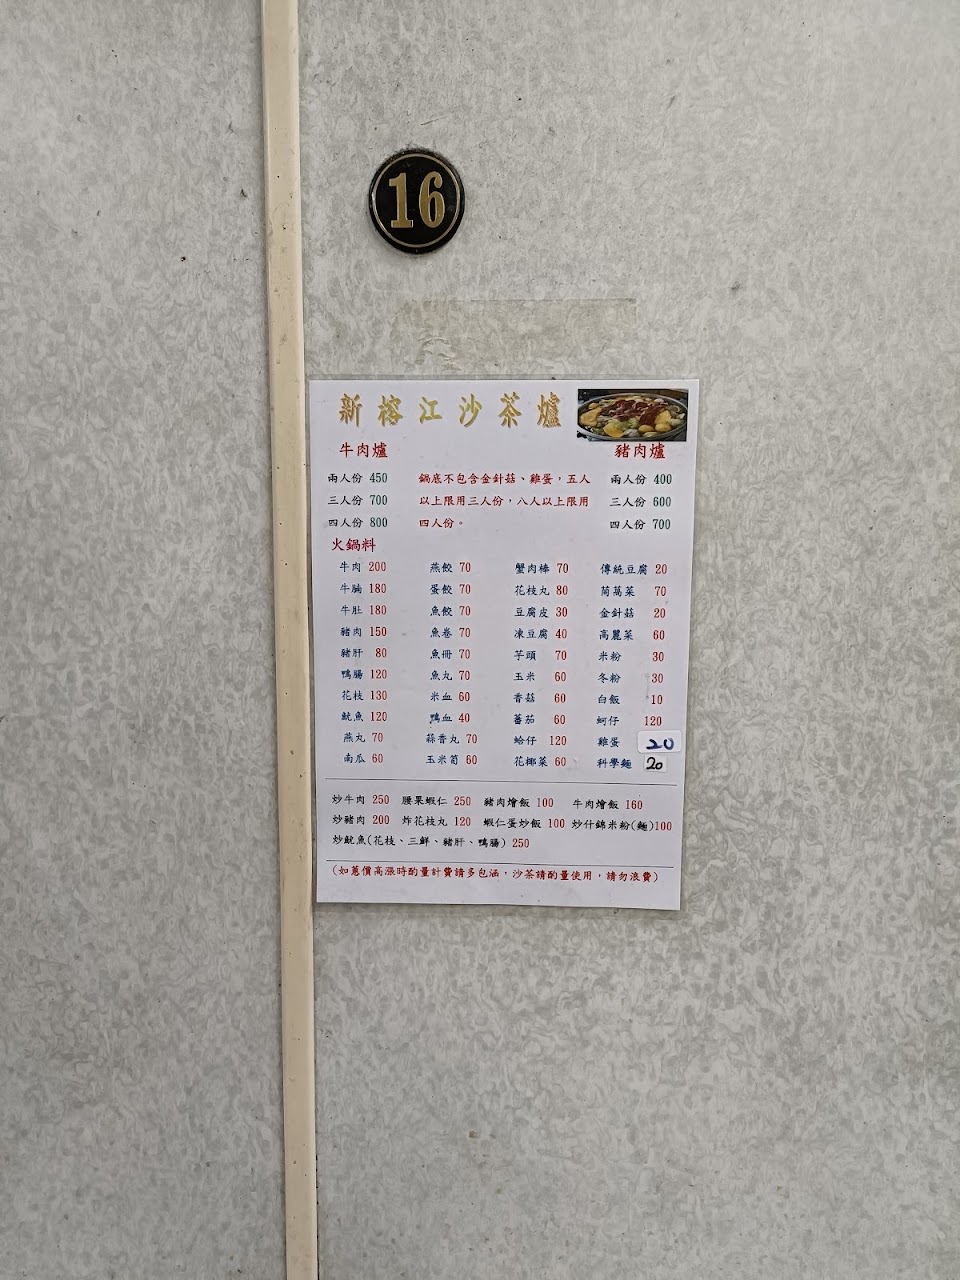 16
新榕江沙茶爐
牛肉爐 豬肉爐
兩人份 450 鍋底不包含金針菇、雞蛋，五人 兩人份 400
三人份 700 以上限用三人份，八人以上限用 三人份 600
四人份 800 四人份。 四人份 700
火鍋料
牛肉 200 燕餃 70 蟹肉棒 70 傳統豆腐 20
牛腩 180 蛋餃 70 花枝丸 80 茼萵菜 70
牛肚 180 魚餃 70 豆腐皮 30 金針菇 20
豬肉 150 魚卷 70 凍豆腐 40 高麗菜 60
豬肝 80 魚冊 70 芋頭 70 米粉 30
鴨腸 120 魚丸 70 玉米 60 冬粉 30
花枝 130 米血 60 香菇 60 白飯 10
魷魚 120 鴨血 40 蕃茄 60 蚵仔 120
燕丸 70 蒜香丸 70 蛤仔 120 雞蛋 20
南瓜 60 玉米筍 60 花椰菜 60 科學麵 20
炒牛肉 250 腰果蝦仁 250 豬肉燴飯 100 牛肉燴飯 160
炒豬肉 200 炸花枝丸 120 蝦仁蛋炒飯 100 炒什錦米粉(麵)100
炒魷魚(花枝、三鮮、豬肝、鴨腸) 250
(如蔥價高漲時酌量計費請多包涵，沙茶請酌量使用，請勿浪費)